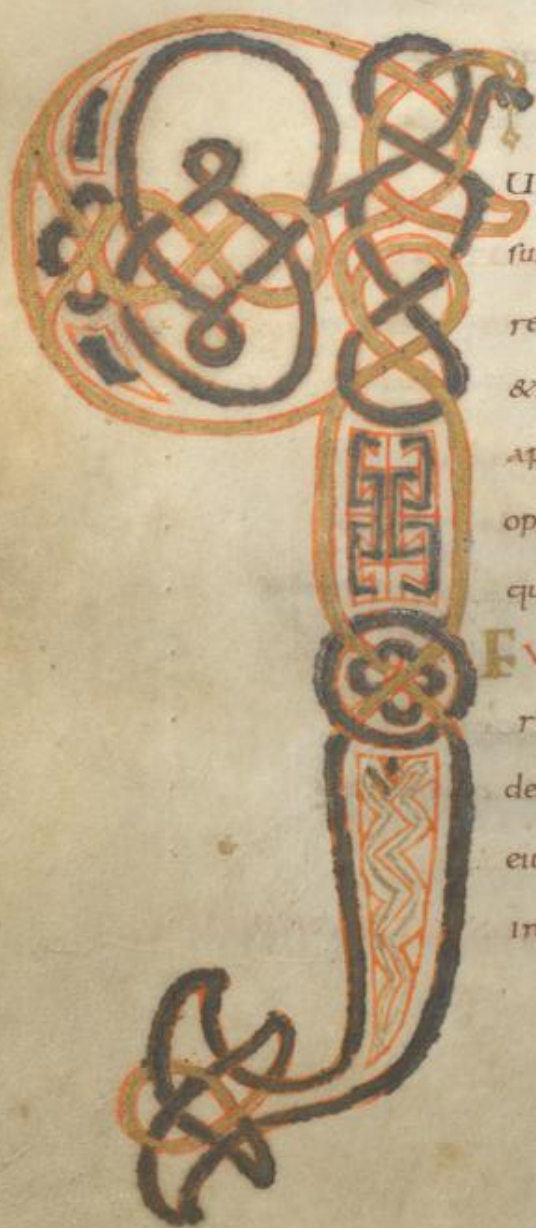 q
U
su
re
&
ap
op
qu
FV
r
de
eu
in